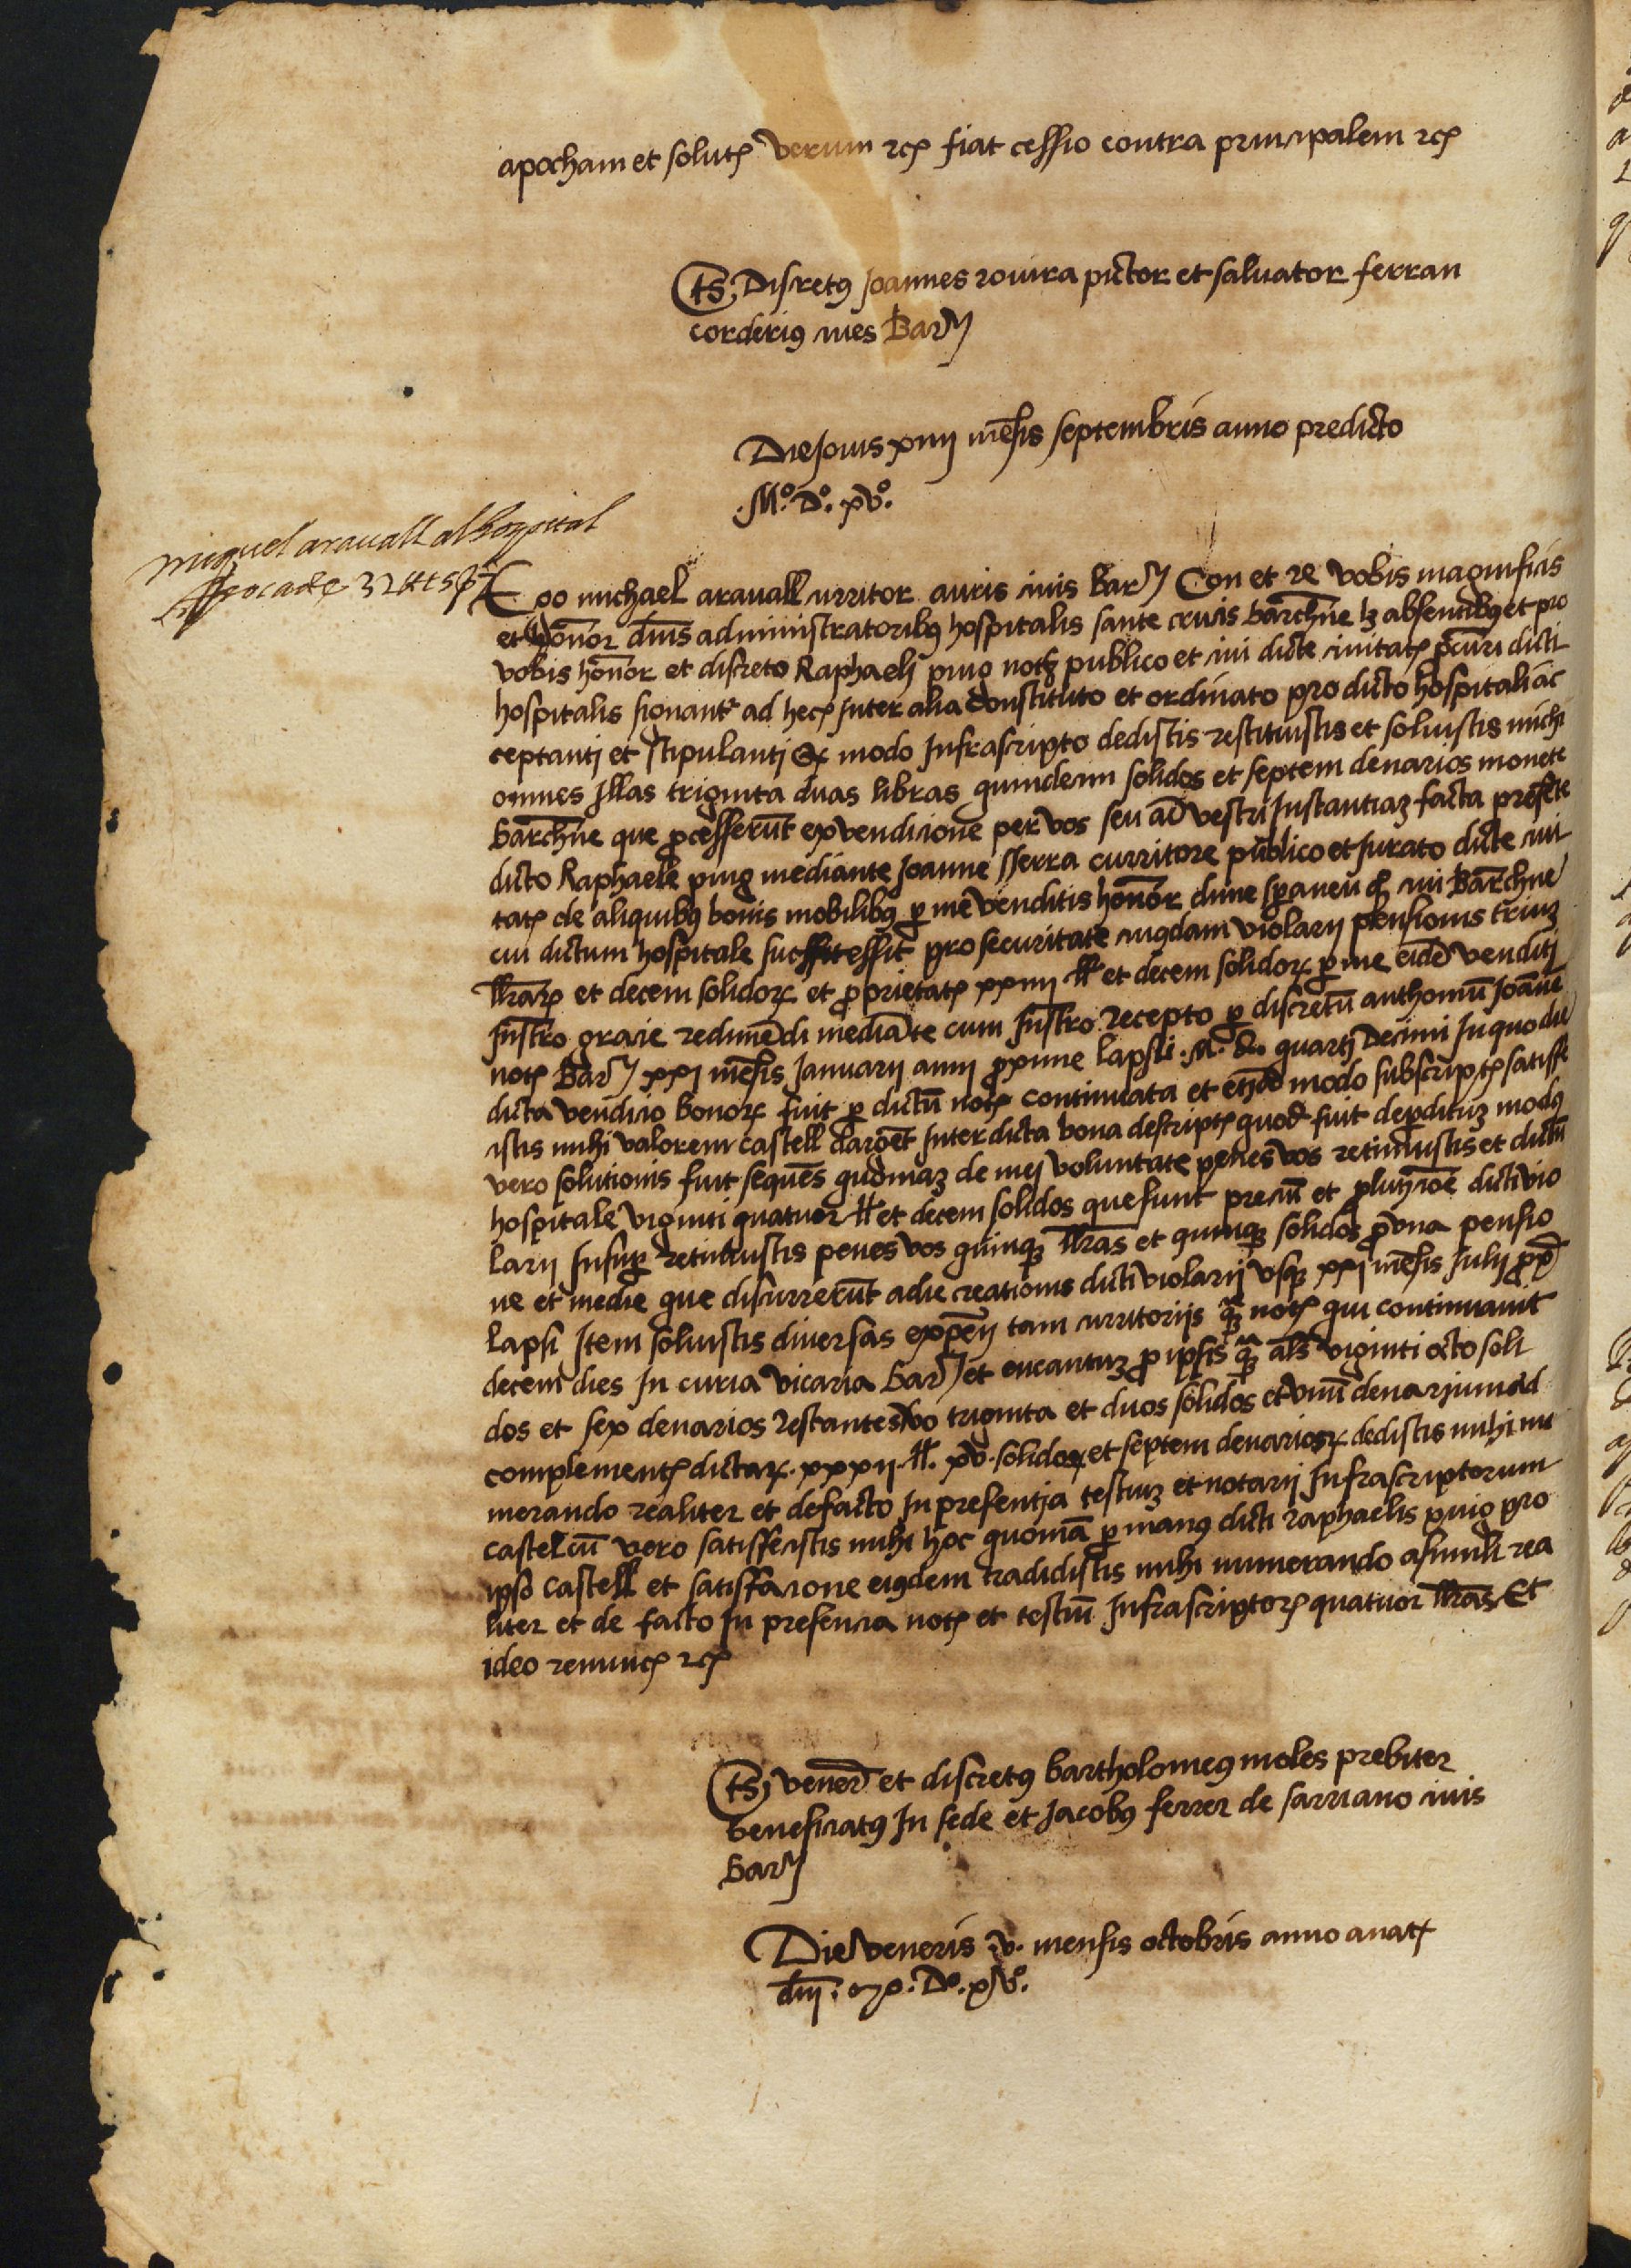 apocham et solutꝭ verum ⁊cꝭ fiat cessio contra principalem ⁊cꝭ
Ts; Discretꝰ Joannes rovira pictor et salvator ferran
corderiꝰ cives Barꝭ
Die Jovis xiiij mēsis septembris anno predicto
.Mº. Dº. xvº.
miquel aravall al hospital
apoca de 32 ll 15 s 7
Ego michael aravall curritor auris civis Barꝭ Con et re vobis magnificis
et honōr dnis administratoribꝰ hospitalis sante crucis barchne lꝫ absentibꝰ et pro
vobis honōr et discreto Raphaeli puig notꝫ publico et civi dicte civitatꝭ p̄curi dicti
hospitalis signantꝭ ad hecꝭ Inter alia constituto et ordinato pro dicto hospitali ac
ceptanti et stipulanti qꝫ modo Infrascripto dedistis restituistis et solvistis michi
omnes Illas triginta duas libras quindecim solidos et septem denarios monete
barchne que p̄cesserūt ex vendicione per vos seu ad vestri Instantiaꝫ facta presēte
dicto Raphaele puig mediante Joanne sserra curritore publico et Jurato dicte civi
tatꝭ de aliquibꝰ bonis mobilibꝰ ꝑ me venditis honōr dnne speraneu qͫ civi Barchne
cui dictum hospitale successit pro securitate cuꝰdam violarii pensionis triuꝫ
llrarꝭ et decem solidorꝭ et ꝓprietatꝭ xxiiij ll et decem solidorꝭ ꝑ me eidē venditi
Instro gracie redimēdi mediāte cum Instro recepto ꝑ discretū anthoniū Joāne
notꝭ Barꝭ xxj mēsis Januarii anni ꝓxime lapsi .M. d. quarti Decimi In quo die
dicta vendicio bonorꝭ fuit ꝑ dictū notꝭ continuata et etiā modo subscriptꝭ satisfe
cistis mihi valorem castell dargēt Inter dicta bona descriptꝭ quod fuit deꝑdituꝫ modꝰ
vero solutionis fuit sequēs quoniaꝫ de mei voluntate penes vos retinuistis et dictū
hospitale viginti quatuor ll et decem solidos que sunt preciū et ꝓ luycione dicti vio
larii Insuꝑ retinuistis penes vos quinqꝫ llras et quinqꝫ solidos ꝓ una pensio
ne et medie que discurrerūt a die creationis dicti violarii usqꝫ xxj mēsis Julii ꝓxͤ
lapsi Item solvistis diversas expēn tam curritoriis qꝫ notꝭ qui continuavit
decem dies In curia vicaria Barꝭ et encantuꝫ ꝓ ipsis qꝫ als viginti octo soli
dos et sex denarios Restantes vͦo triginta et duos solidos et unū denarium ad
complementꝭ dictarꝭ .xxxij. ll. xv. solidorꝭ et septem denariorꝭ dedistis mihi nu
merando realiter et de facto In presentia testiuꝫ et notarii Infrascriptorum
castelcū vero satisffecistis mihi hoc quoniā ꝑ manꝰ dicti raphaelis puig pro
ipso castell et satisfacione eiꝰdem tradidistis mihi numerando a simili rea
liter et de facto In presencia notꝭ et testiū Infrascriptorꝭ quatuor llras Et
ideo renuncꝭ ⁊cꝭ
Ts; venerͤ et discretꝰ bartholomeꝰ moles prebiter
beneficiatꝰ In sede et Jacobꝰ ferrer de sarriano civis
Barꝭ
Die veneris v. mensis octobris anno a natꝭ
dnj. Mº. Dº. xvº.